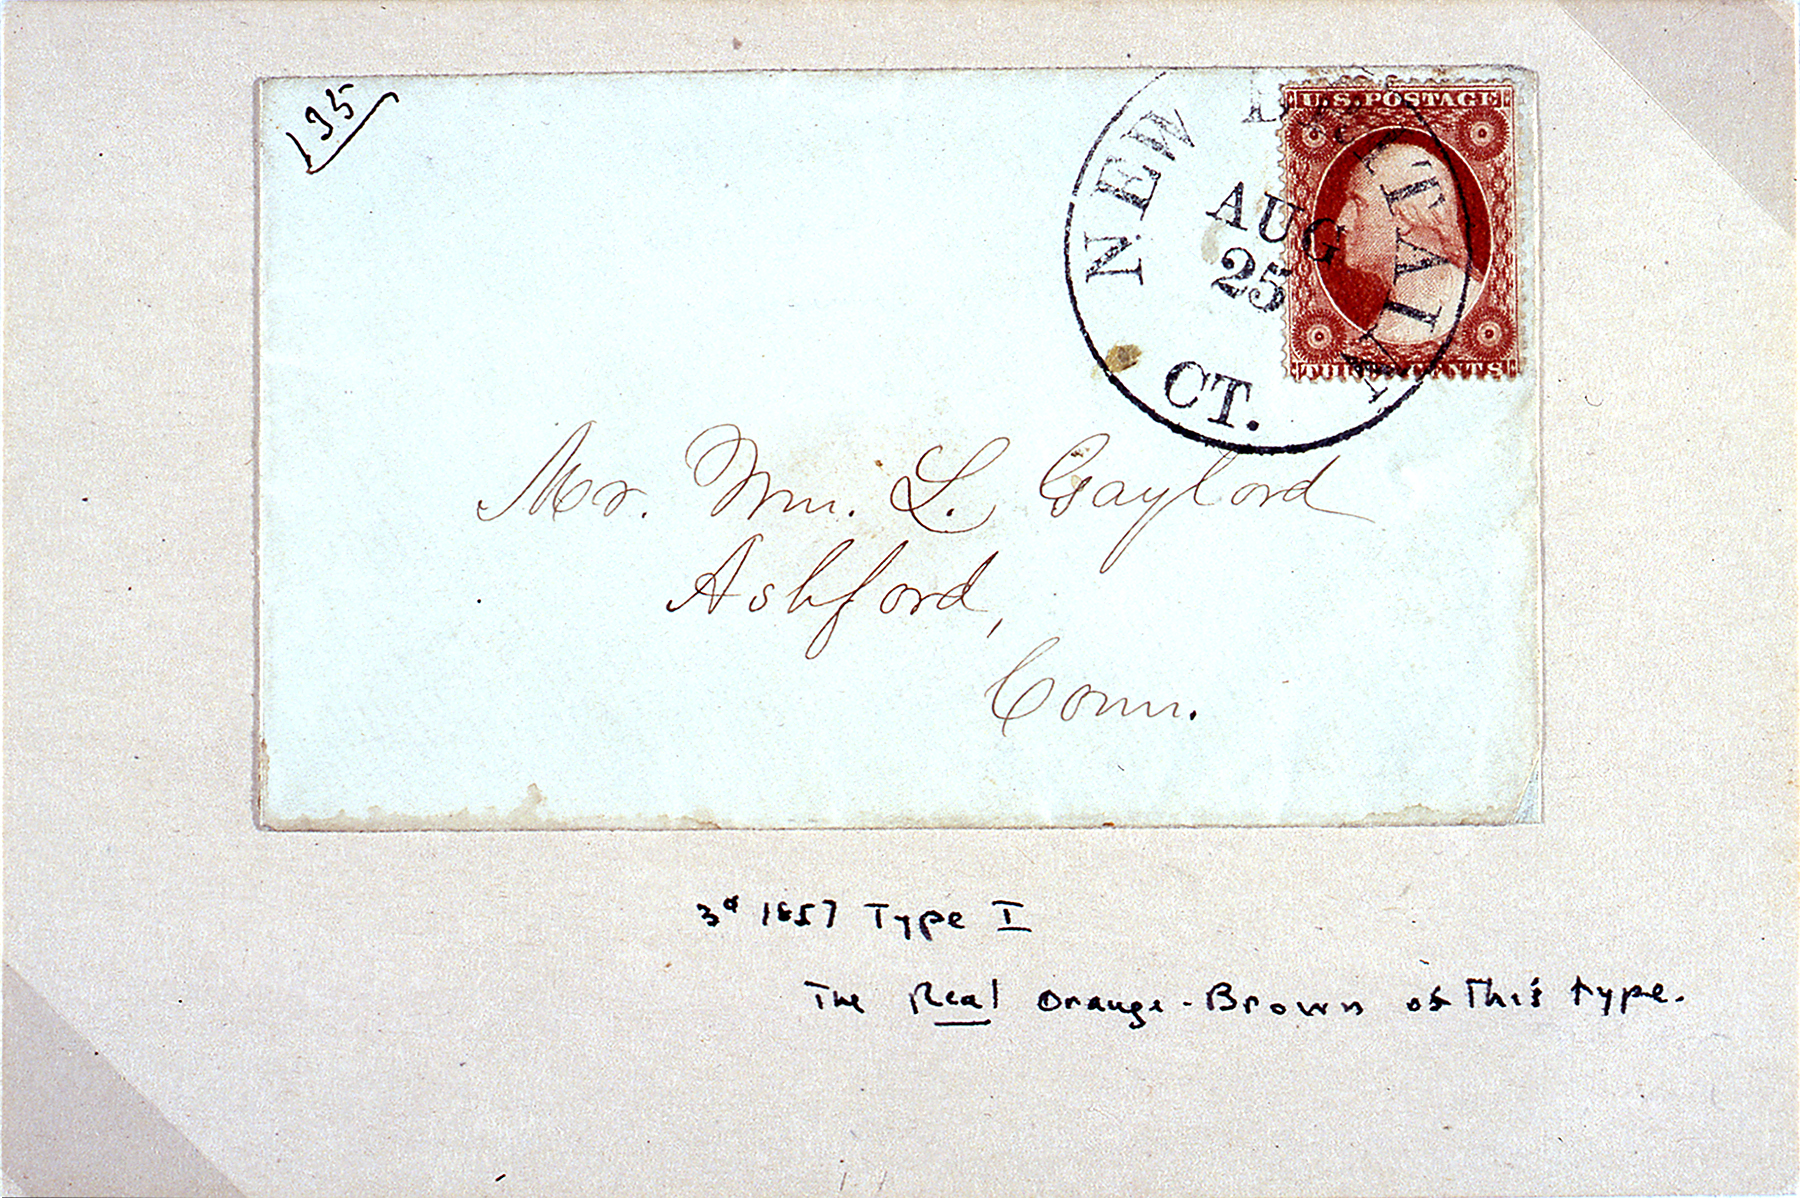 135
U.S. POSTAGE
NEW BRITAIN
AUG
25
CT.
THREE CENTS
Mr. Wm. L. Gaylord
Ashford,
Conn.
3¢ 1857 Type I
The Real Orange-Brown of This type.